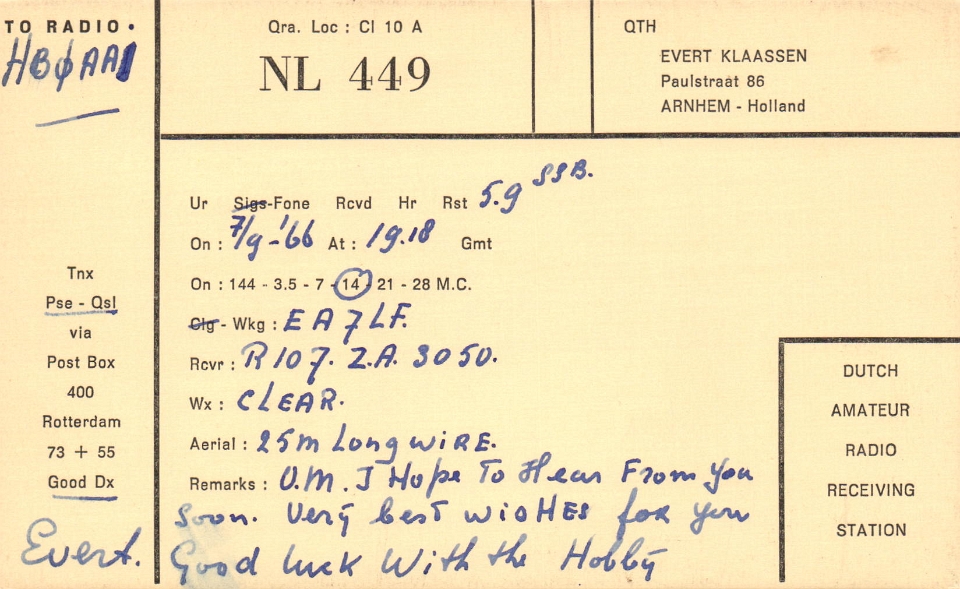 TO RADIO •
HBØAAI
Qra. Loc : Cl 10 A
NL 449
QTH
EVERT KLAASSEN
Paulstraat 86
ARNHEM - Holland
Ur Sigs-Fone Rcvd Hr Rst 5.9 SSB.
On : 7/9-'66 At : 19.18 Gmt
On : 144 - 3.5 - 7 - 14 - 21 - 28 M.C.
Clg - Wkg : EA7LF.
Rcvr : R107. Z.A. 3050.
Wx : CLEAR.
Aerial : 25m Long wiRE.
Remarks : O.M. I Hope To Hear From you
Soon. Very best wisHES for you
Good luck With the Hobby
Tnx
Pse - Qsl
via
Post Box
400
Rotterdam
73 + 55
Good Dx
Evert.
DUTCH
AMATEUR
RADIO
RECEIVING
STATION